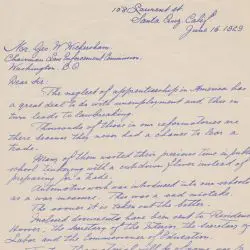 108 Laurent St.
Santa Cruz Calif
June 16. 1929.
Mr. Geo W. Wickersham.
Chairman Law Enforcement Commission
Washington. D.C.
Dear Sir.
The neglect of apprenticeship in America has
a great deal to do with unemployment and this in
turn leads to lawbreaking.
Thousands of those in our reformatories are
there because they never had a chance to learn a
trade.
Many of them wasted their precious time in public
school tinkering with a cut down flivver instead of
preparing for a trade.
Automotive work was introduced into our schools
as a war measure. This was a sad mistake.
The sooner it is taken out the better.
Inclosed documents have been sent to President
Hoover, the Secretary of the Interior, the Secretary of
Labor and the Commissioner of Education.